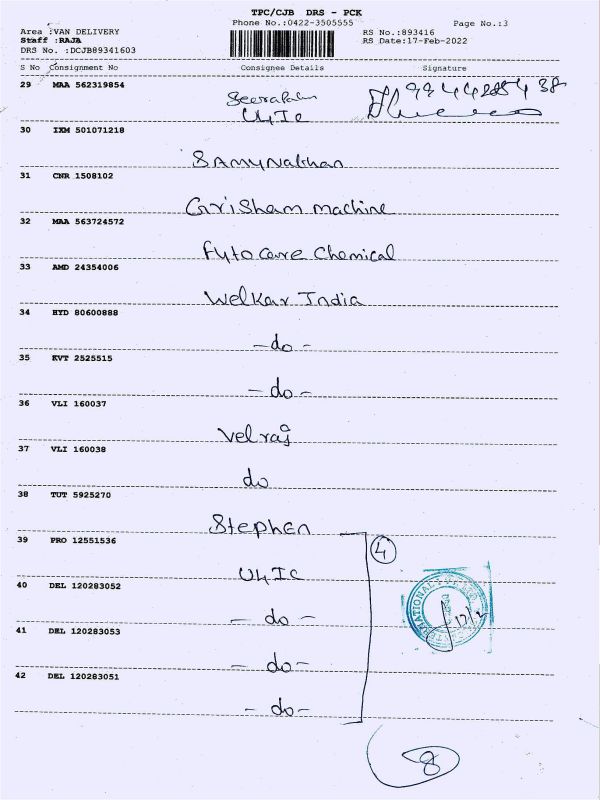 TPC/CJB DRS - PCK
Phone No.:0422-3505555 Page No.:3
Area :VAN DELIVERY RS No.:893416
Staff :RAJA RS Date:17-Feb-2022
DRS No. :DCJB89341603
S No Consignment No Consignee Details Signature
29 MAA 562319854
U4Ic
30 IXM 501071218
Samynathan
31 CNR 1508102
Grisham machine
32 MAA 563724572
Fyto care Chemical
33 AMD 24354006
Welkar India
34 HYD 80600888
-do-
35 KVT 2525515
-do-
36 VLI 160037
Velraj
37 VLI 160038
do
38 TUT 5925270
Stephen
39 PRO 12551536
4
U4Ic
40 DEL 120283052
-do-
41 DEL 120283053
-do-
42 DEL 120283051
-do-
8